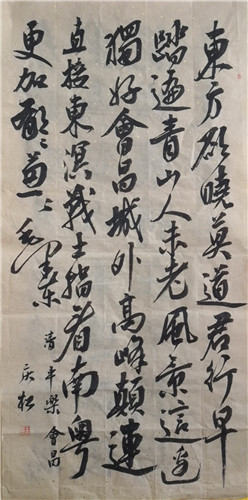 東方欲曉莫道君行早
踏遍青山人未老風景這邊
獨好會昌城外高峰顛連
直接東溟戰士指看南粵
更加郁〻葱〻毛澤東
清平樂 會昌
庆松